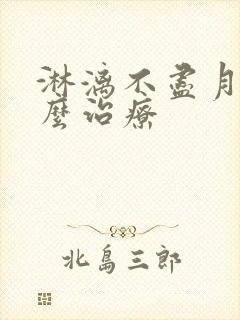 淋漓不尽月
麼治療
北島三郎